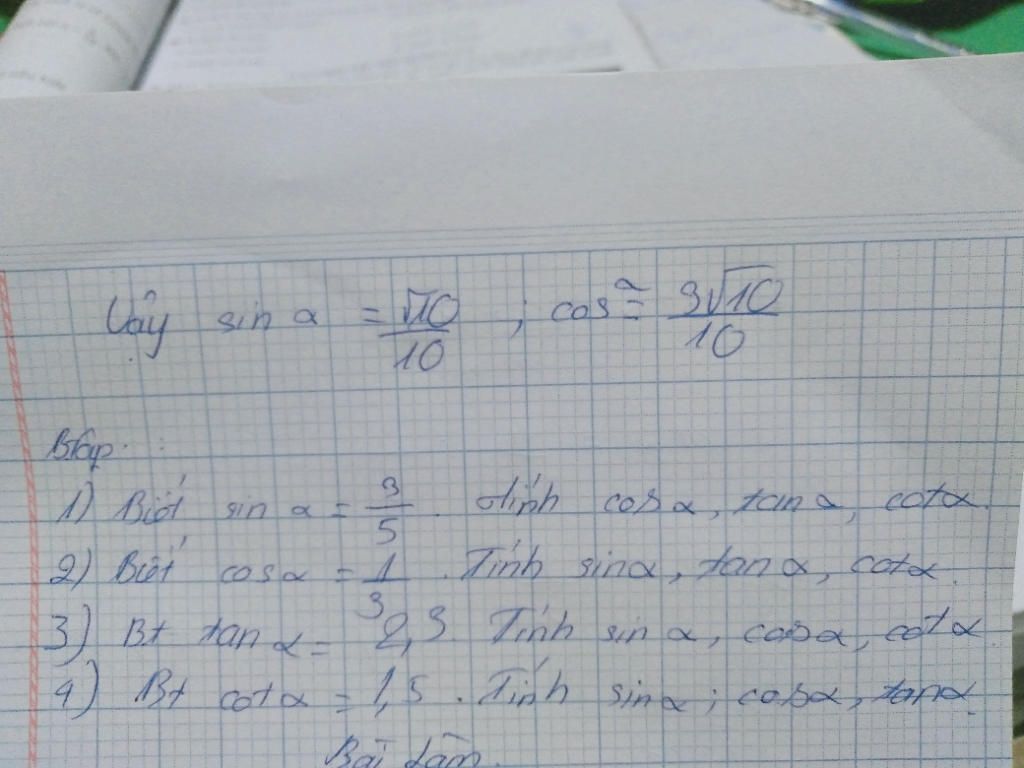 Vậy sin α = √10/10 ; cos α = 3√10/10
Btập:
1) Biết sin α = 3/5. Tính cos α, tan α, cot α.
2) Biết cos α = 1/3. Tính sin α, tan α, cot α.
3) Bt tan α = 2,3. Tính sin α, cos α, cot α
4) Bt cot α = 1,5. Tính sin α; cos α, tan α.
Bài làm.